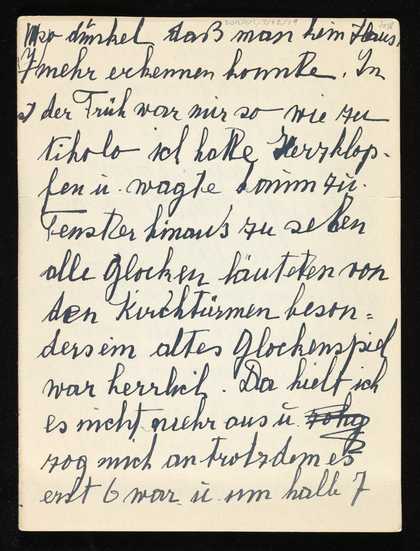 so dunkel daß man kein Haus
mehr erkennen konnte. In
der Früh war mir so wie zu
ich hatte Herzklop-
fen u. wagte kaum zu.
Fenster hinaus zu sehen
alle Glocken läuteten von
den Kirchtürmen beson=
ders ein altes Glockenspiel
war herrlich. Da hielt ich
es nicht mehr aus u.
zog mich an trotzdem es
erst 6 war u. um halb 7